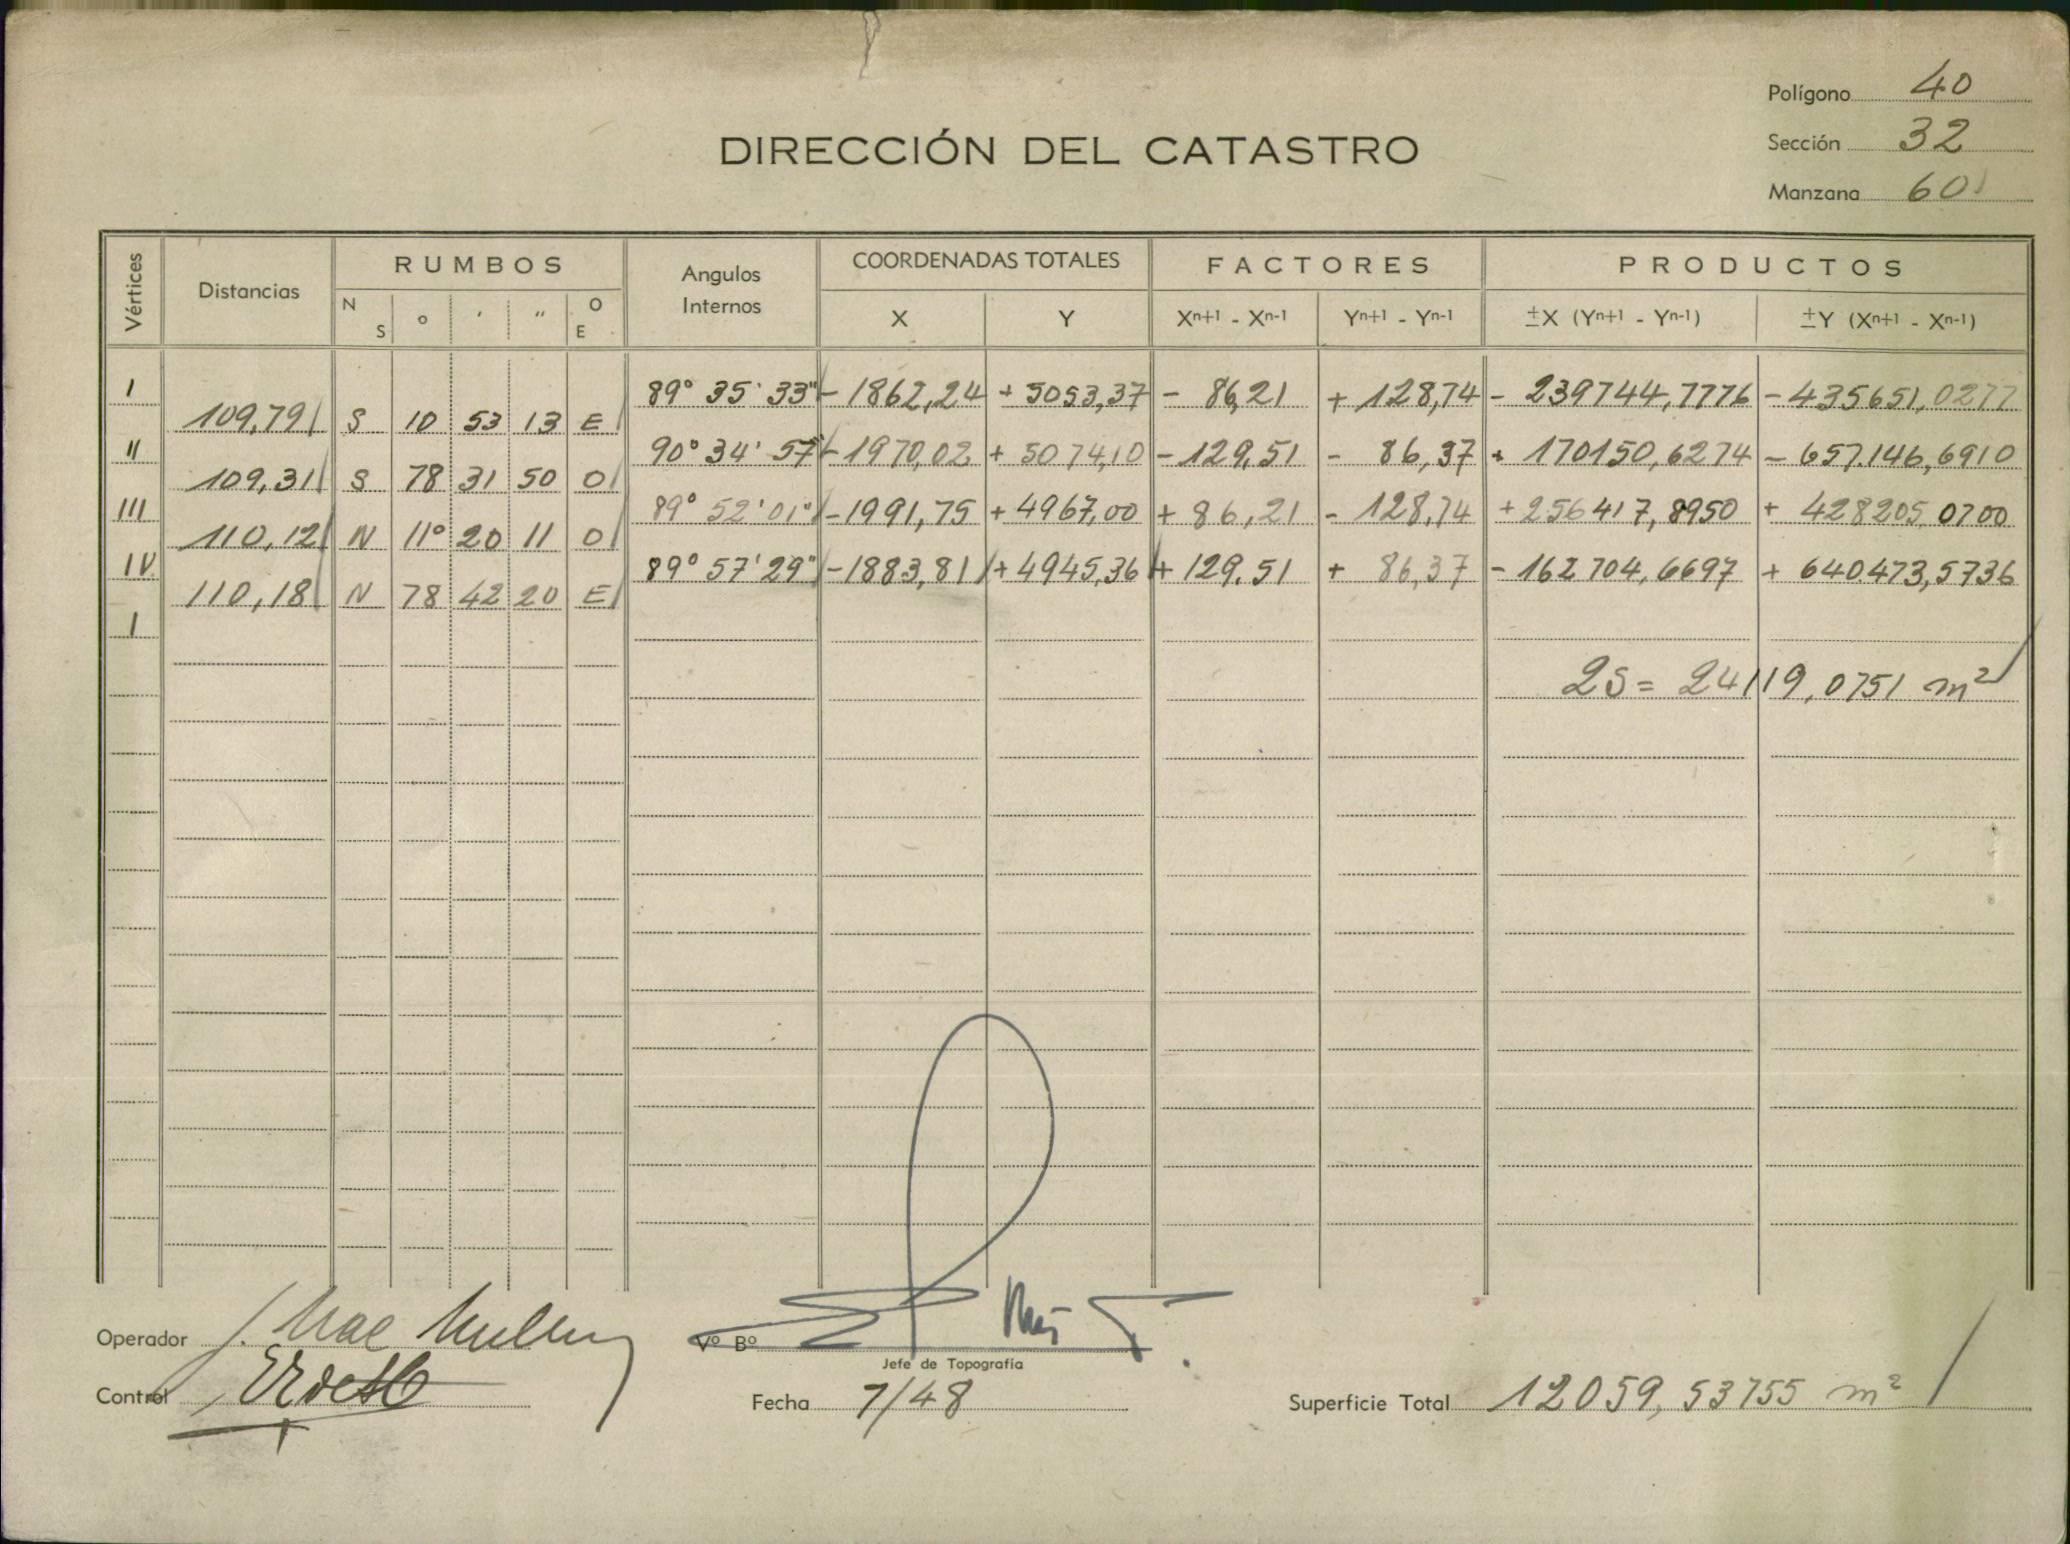 Polígono 40
Sección 32
Manzana 60
DIRECCIÓN DEL CATASTRO
Vértices Distancias RUMBOS Angulos Internos COORDENADAS TOTALES FACTORES PRODUCTOS
N S ° ' " O E X Y Xn+1 - Xn-1 Yn+1 - Yn-1 ±X (Yn+1 - Yn-1) ±Y (Xn+1 - Xn-1)
I 89° 35' 33" - 1862,24 + 5053,37 - 86,21 + 128,74 - 239744,7776 - 435651,0277
109,79 S 10 53 13 E
II 90° 34' 57" - 1970,02 + 5074,10 - 129,51 - 86,37 + 170150,6274 - 657.146,6910
109,31 S 78 31 50 O
III 89° 52' 01" - 1991,75 + 4967,00 + 86,21 - 128,74 + 256417,8950 + 428205,0700
110,12 N 11° 20 11 O
IV 89° 57' 29" - 1883,81 + 4945,36 + 129,51 + 86,37 - 162704,6697 + 640.473,5736
110,18 N 78 42 20 E
I
2S = 24119,0751 m²
Operador J. Mac
Vº Bº
Jefe de Topografía
Control
Fecha 7/48
Superficie Total 12059,53755 m²